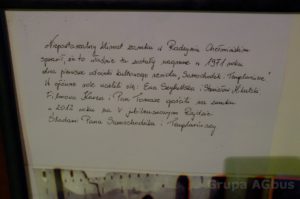 Niepowtarzalny klimat zamku w Radzyniu Chełmińskim
sprawił, że to właśnie tu zostały nagrane w 1971 roku
dwa pierwsze odcinki kultowego serialu „Samochodzik i Templariusze"
W główne role wcielili się: Ewa Szykulska i Stanisław Mikulski
Filmowa Karen i Pan Tomasz gościli na zamku
w 2012 roku na V jubileuszowym Rajdzie
Śladami Pana Samochodzika i Templariuszy
Grupa AGbus